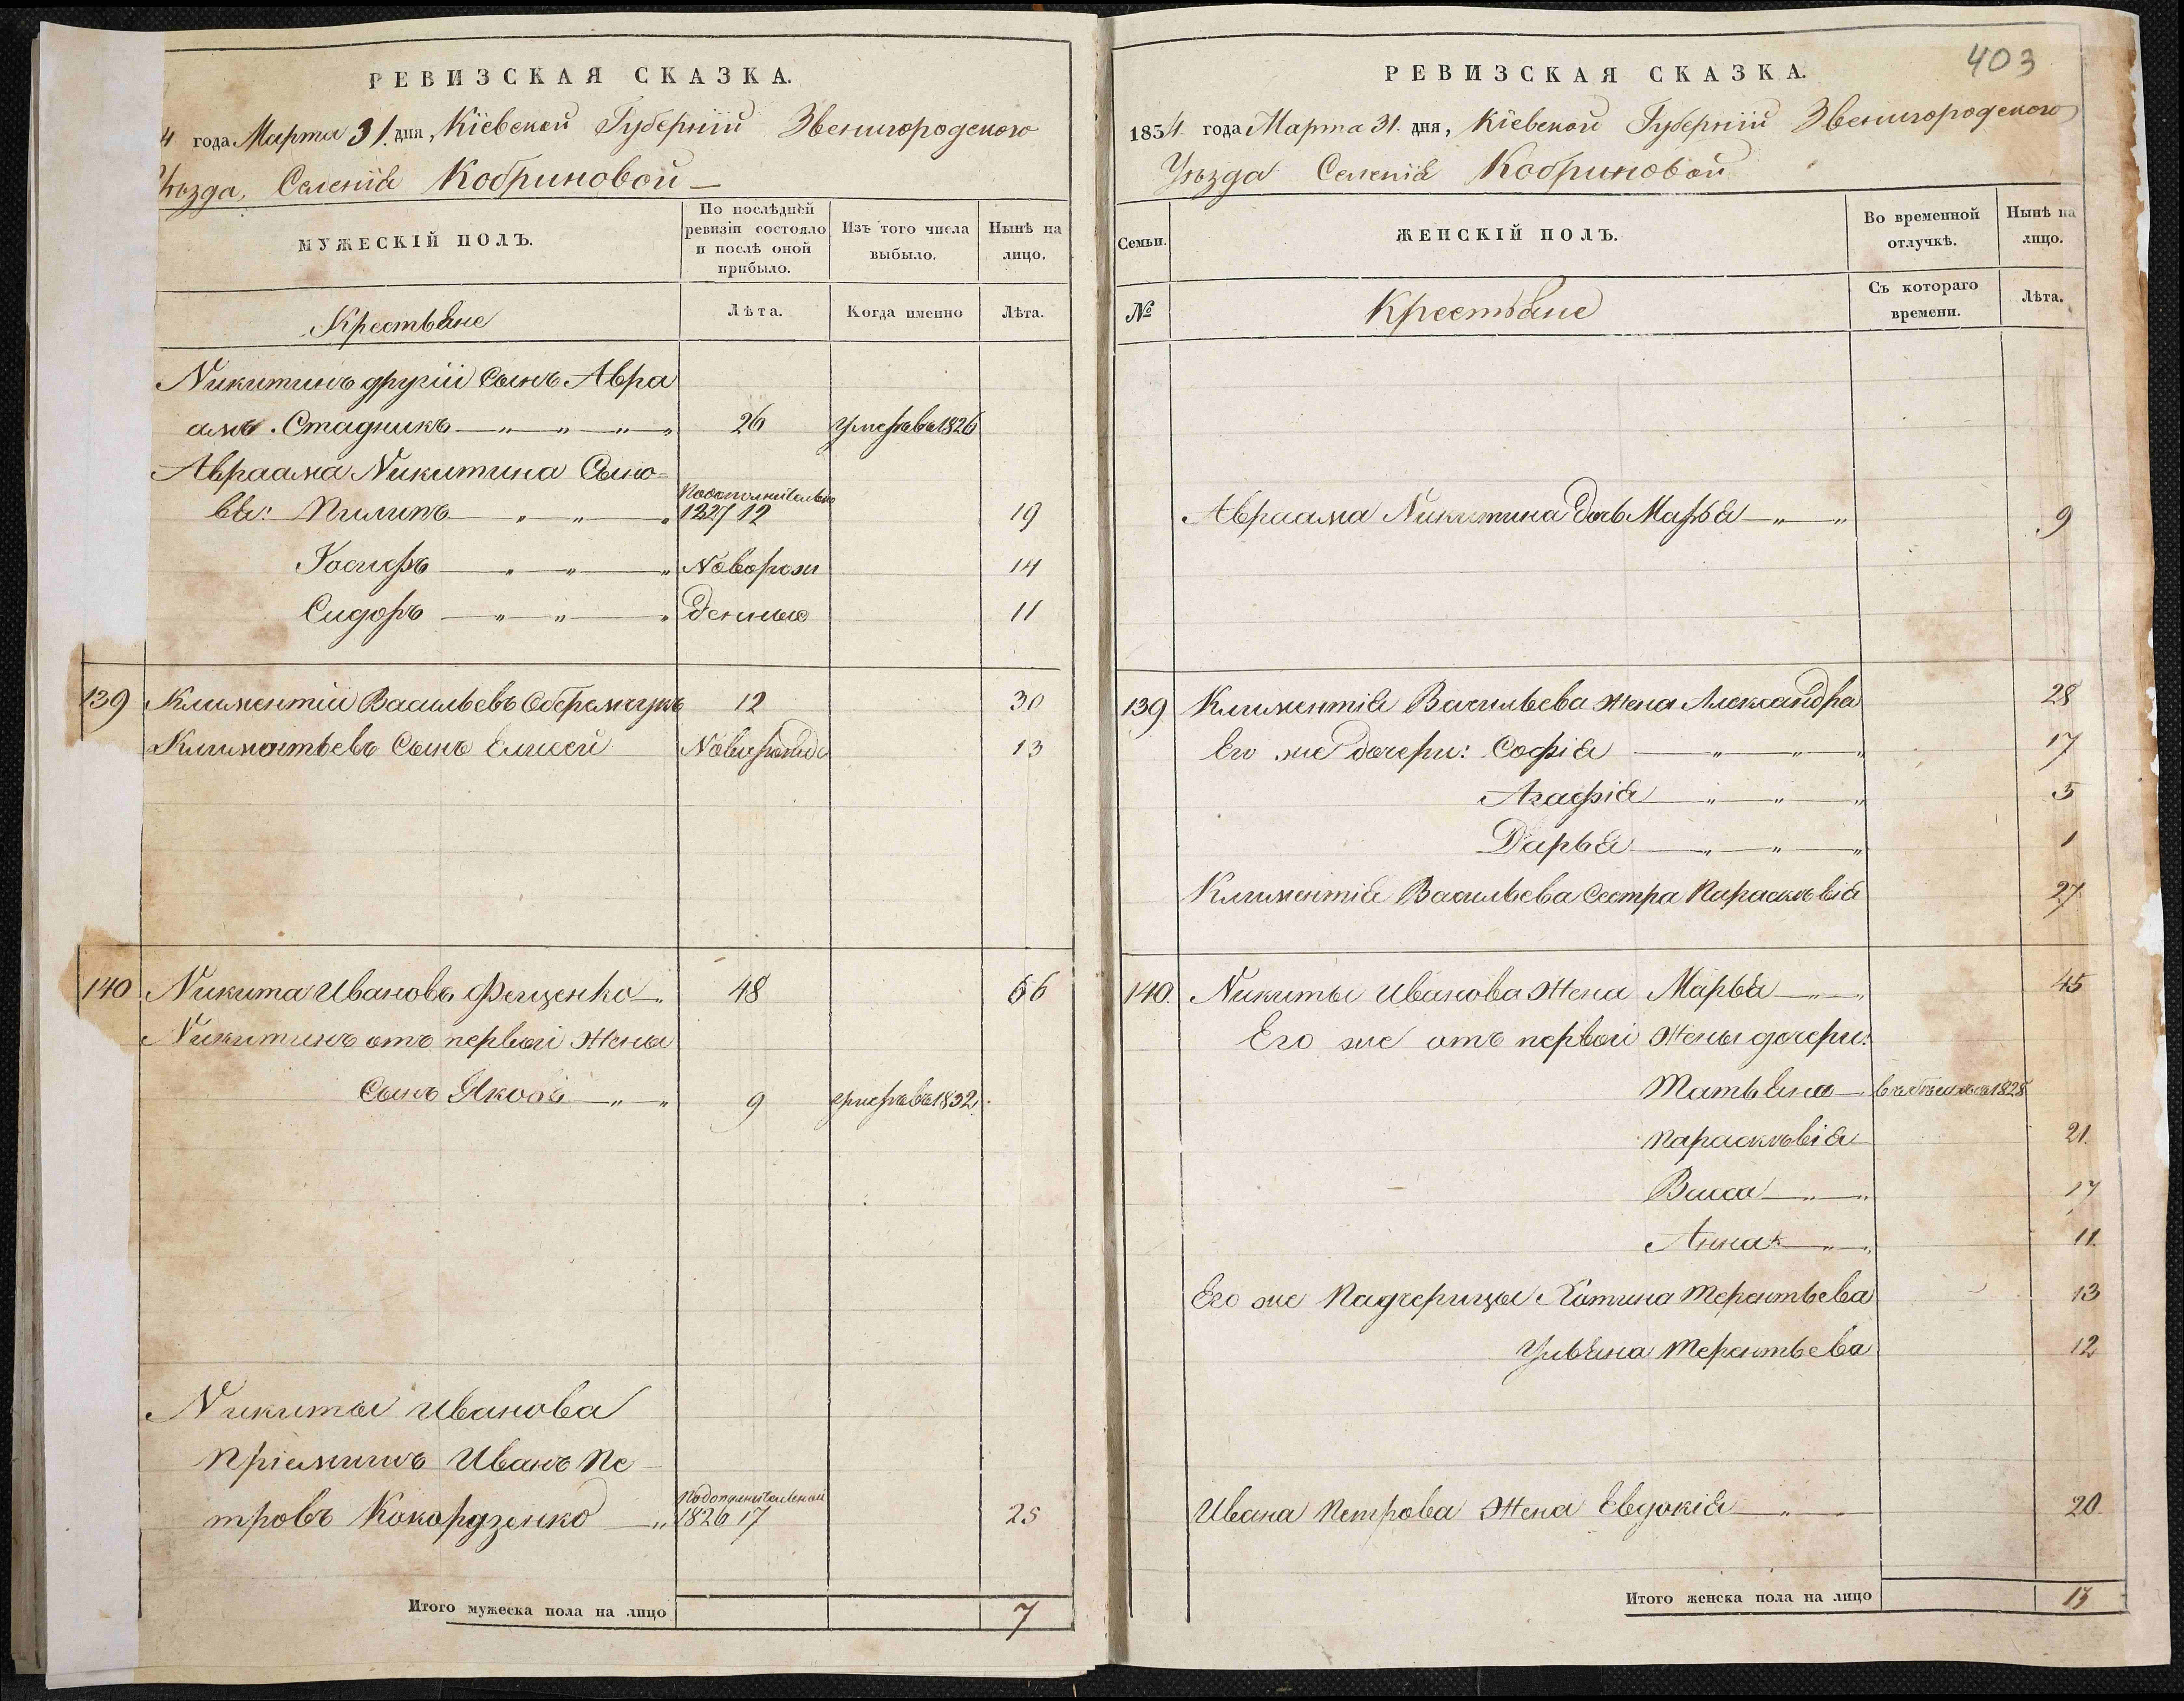 РЕВИЗСКАЯ СКАЗКА.
4 года Марта 31. дня, Кіевской Губерніи Звенигородского
Уѣзда, Селенія Кобриновой
МУЖЕСКІЙ ПОЛЪ.
По послѣдней ревизіи состояло и послѣ оной прибыло.
Изъ того числа выбыло.
Нынѣ на лицо.
Крестьяне
Лѣта.
Когда именно
Лѣта.
Никитинъ другій Сынъ Авра
амъ. Стадникъ 26 умеръ въ 1826
Авраама Никитина Сыно=
вья: Пилипъ 1827 12 19
Іосифъ Новорож 14
Сидоръ денные 11
139 Климентій Васильевъ 12 30
Климентьевъ Сынъ Елисей Новорожде 13
140 Никита Ивановъ Фещенко 48 66
Никитинъ отъ первой Жены
Сынъ Яковъ 9 умеръ въ 1832.
Никиты Иванова
Пріемышъ Иванъ Пе
тровъ Кокордзенко 1826 17 25
Итого мужеска пола на лицо 7
403
РЕВИЗСКАЯ СКАЗКА.
1834. года Марта 31. дня, Кіевской Губерніи Звенигородского
Уѣзда Селенія Кобриновой
Семьи.
ЖЕНСКІЙ ПОЛЪ.
Во временной отлучкѣ.
Нынѣ на лицо.
№
Крестьяне
Съ котораго времени.
Лѣта.
Авраама Никитина дочь Марья 9
139 Климентія Васильева жена Александра 28
Его же дочери: Софія 17
Агафія 5
Дарья 1
Климентія Васильева Сестра Параскѣвія 27
140. Никиты Иванова Жена Марья 45
Его же отъ первой Жены дочери:
Татьяна 1828
Параскѣвія 21.
Васса 17
Анна 11.
Его же Падчерицы Терентьева 13
Ульяна Терентьева 12
Ивана Петрова Жена Евдокія 20.
Итого женска пола на лицо 13